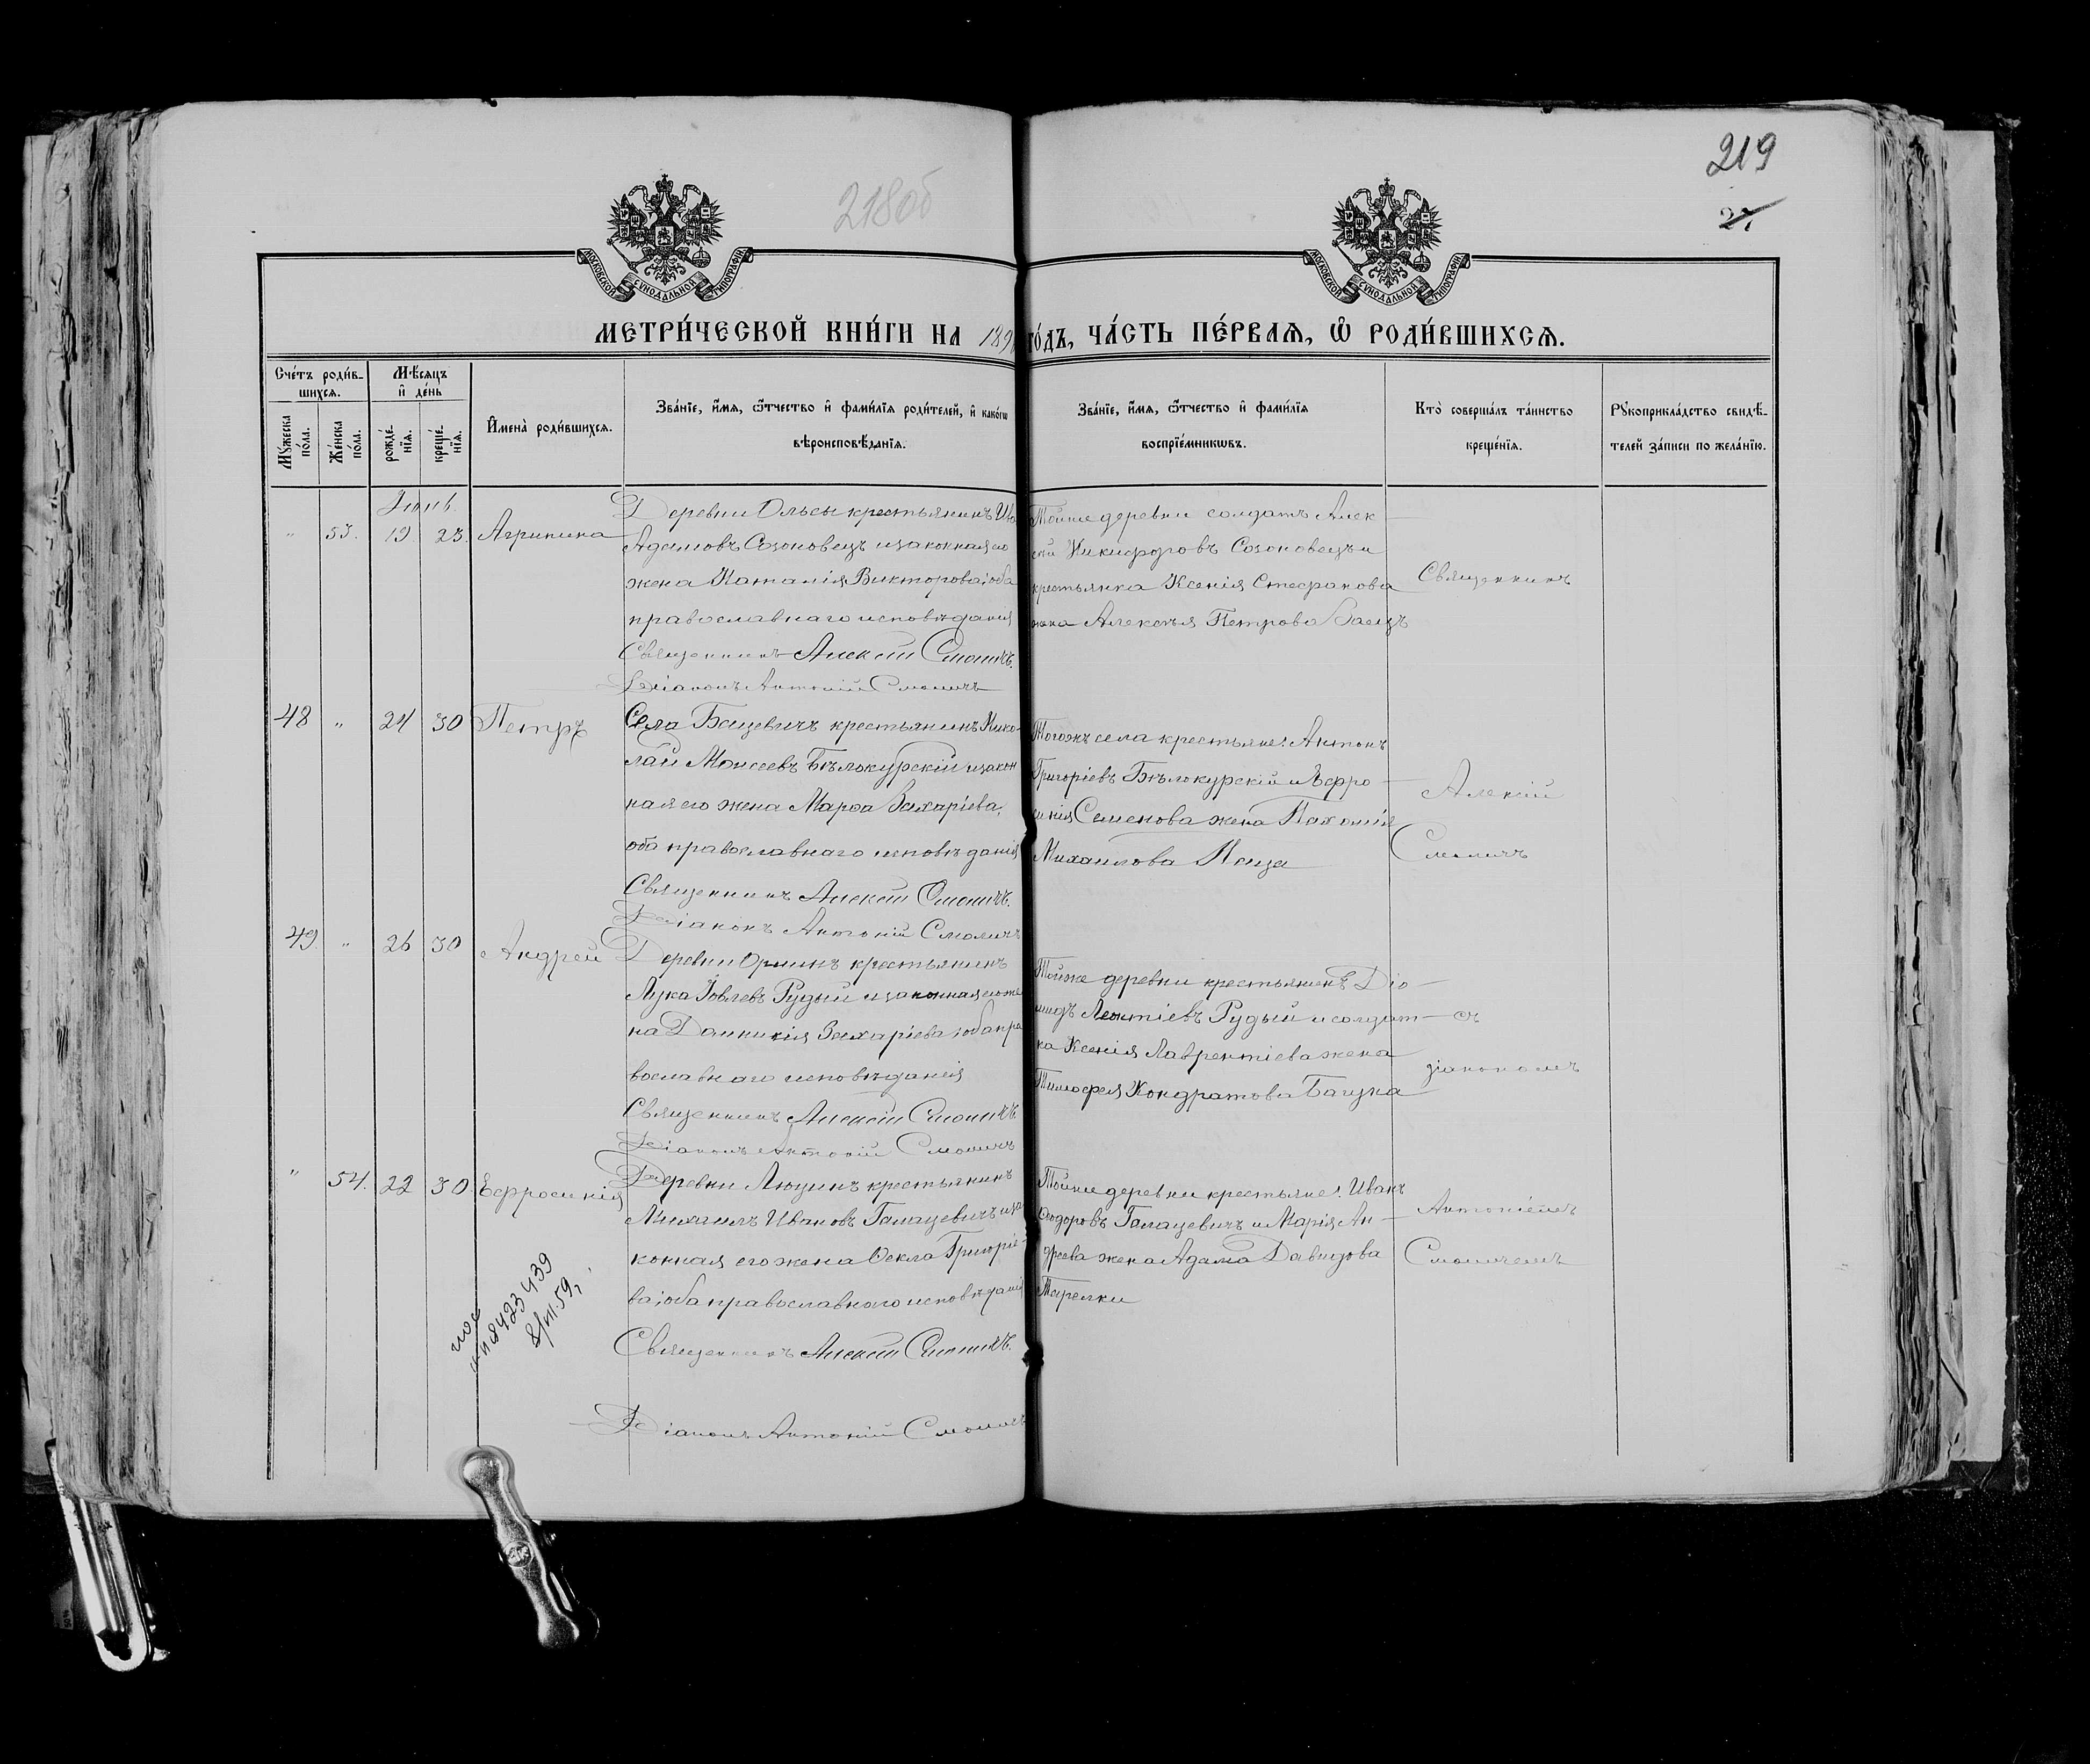 219
218об
27
МОСКОВСКОЙ СѴНОДАЛЬНОЙ ТИПОГРАФІИ
МОСКОВСКОЙ СѴНОДАЛЬНОЙ ТИПОГРАФІИ
МЕТРИ́ЧЕСКОЙ КНИ́ГИ НА 189 ГО́ДЪ, ЧА́СТЬ ПЕ́РВАѦ, Ѡ҆ РОДИ́ВШИХСѦ.
Сче́тъ роди́в-
шихся.
Мꙋжеска по́ла.
Же́нска по́ла.
Мѣ́сяцъ
и҆ де́нь
рожде́-
нїя.
креще́-
нїя.
И҆мена̀ роди́вшихся.
Зва́нїе, и҆́мя, ѻ҆́тчество и҆ фами́лїя роди́телей, и҆ како́гѡ
вѣроисповѣ́данїя.
Зва́нїе, и҆́мя, ѻ҆́тчество и҆ фами́лїя
воспрїе́мникѡвъ.
Кто̀ соверша́лъ та́инство
креще́нїя.
Рꙋкоприкла́дство свидѣ́-
телей за́писи по жела́нїю.
Іюнь
" 53. 19 23. Агрипина
Деревни Ольсы крестьянинъ
Адамовъ Созоновецъ и законная его
жена Наталія Викторова; оба
православнаго исповѣданія
Священникъ Алексій Смоличъ.
Діаконъ Антоній Смоличъ
Тойже деревни солдатъ Алек-
сѣй Никифоровъ Созоновецъ и
крестьянка Ксенія Стефанова
жена Алексѣя Петрова
48 " 24 30 Петръ
Села Бацевичъ крестьянинъ Нико-
лай Моисеевъ Бѣлокурскій и закон
ная его жена Марѳа Захаріева,
оба православнаго исповѣданія
Священникъ Алексій Смоличъ.
Діаконъ Антоній Смоличъ
Тогожъ села крестьяне: Антонъ
Григоріевъ Бѣлокурскій и Ефро-
синія Семенова жена Пахомія
Михаилова
49 " 26 30 Андрей
Деревни Орлинъ крестьянинъ
Лука Іовлевъ Рудый и законная его же
на Домникія Захаріева; оба пра
вославнаго исповѣданія
Священникъ Алексій Смоличъ.
Діаконъ Антоній Смоличъ
Тойже деревни крестьянинъ Діо-
мидъ Леонтіевъ Рудый и солдат-
ка Ксенія Лаврентіева жена
Тимофея Кондратова
" 54. 22 30 Ефросинія
Деревни Люцинъ крестьянинъ
Михаилъ Ивановъ Галацевичъ и за
конная его жена Ѳекла Григоріе-
ва; оба православнаго исповѣданія
Священникъ Алексій Смоличъ.
Діаконъ Антоній Смоличъ
Тойже деревни крестьяне: Иванъ
Ѳеодоровъ Галацевичъ и Марія Ан-
дреева жена Адама Давидова
Тарелки
Священникъ
Алексій
Смоличъ
съ
діакономъ
Антоніемъ
Смоличемъ
8423439